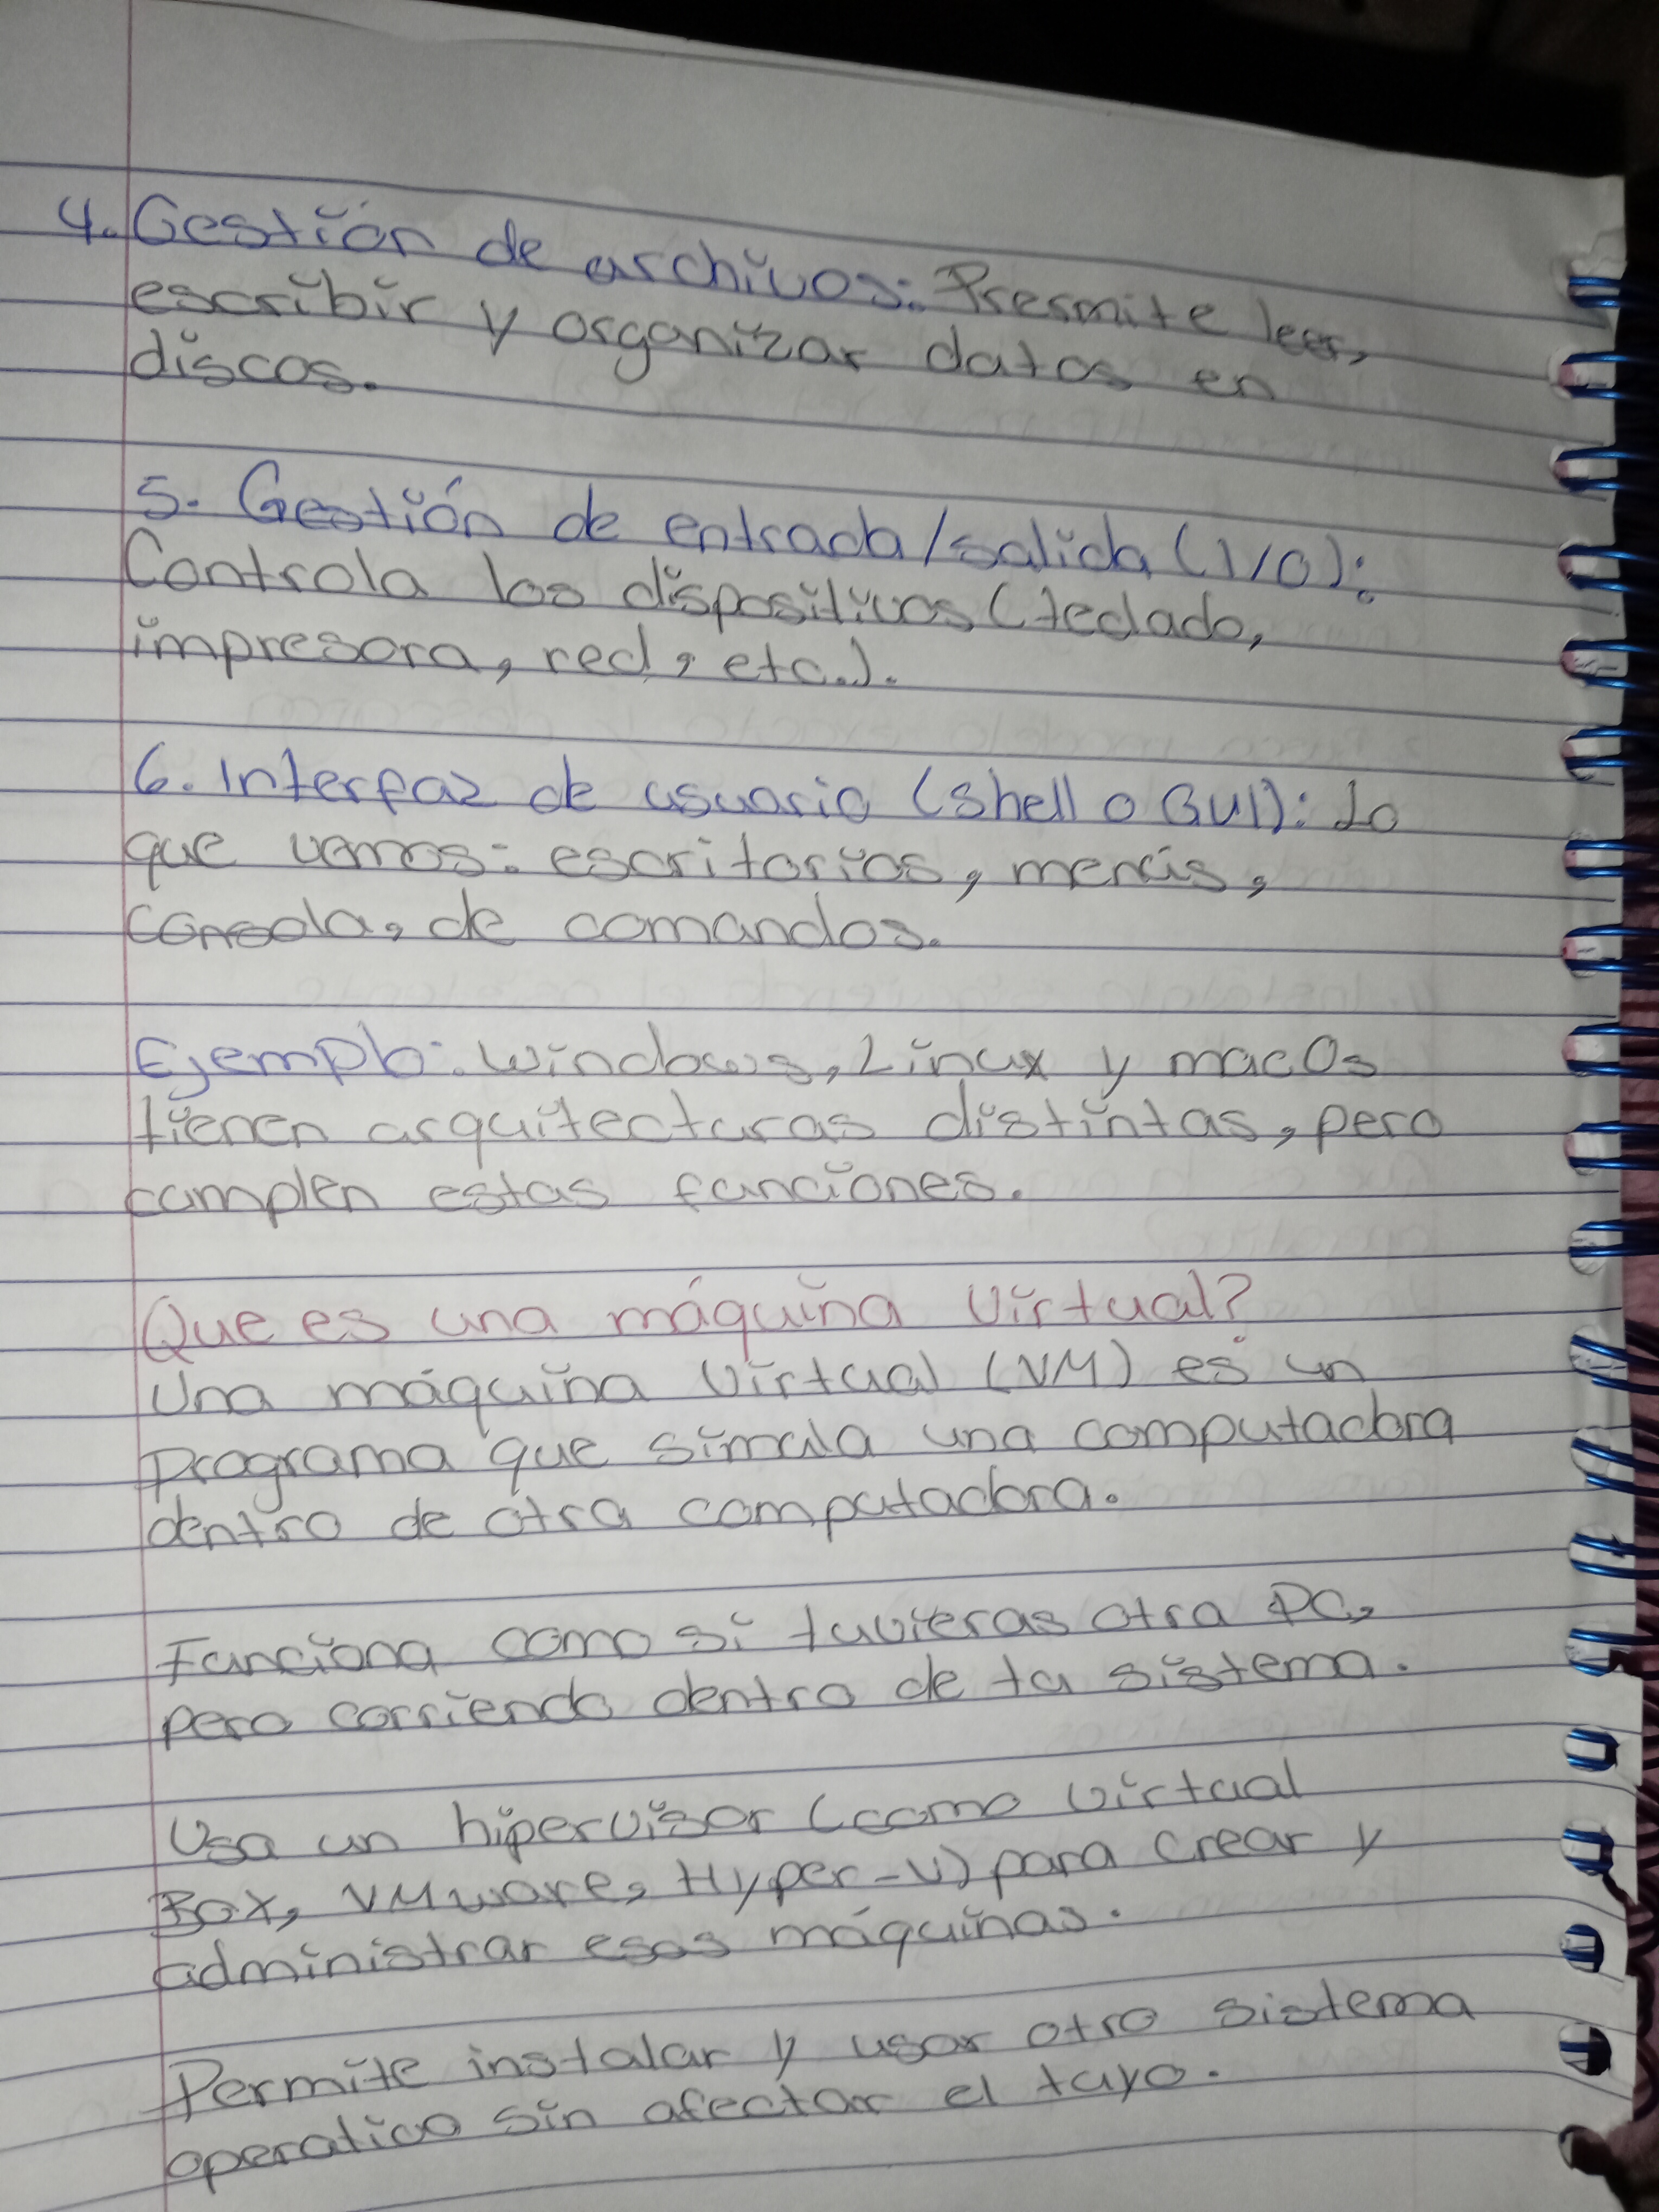 4. Gestión de archivos: Presmite leer,
escribir y organizar datos en
discos.
5. Gestión de entrada/salida (I/O):
Controla los dispositivos (teclado,
impresora, red, etc.).
6. Interfaz de usuario (shell o GUI): Lo
que vemos: escritorios, menús,
consola, de comandos.
Ejemplo: Windows, Linux y macOs
tienen arquitecturas distintas, pero
cumplen estas funciones.
Que es una máquina virtual?
Una máquina virtual (VM) es un
programa que simula una computadora
dentro de otra computadora.
Funciona como si tuvieras otra PC,
pero corriendo dentro de tu sistema.
Usa un hipervisor (como Virtual
Box, VMware, Hyper-V) para crear y
administrar esas máquinas.
Permite instalar y usar otro sistema
operativo sin afectar el tuyo.